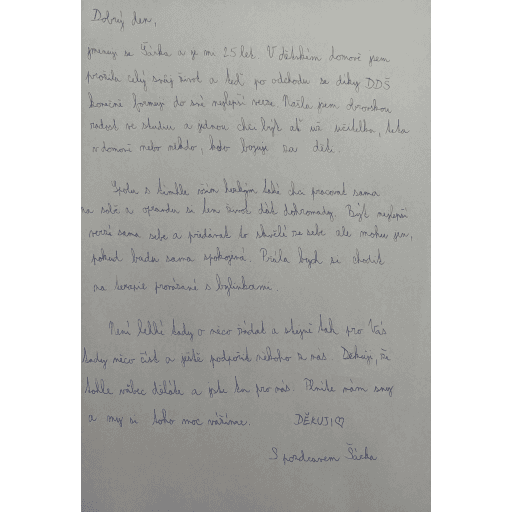 Dobrý den,
jmenuji se Šárka a je mi 25 let. V dětském domově jsem
prožila celý svůj život a teď po odchodu se díky DDŠ
konečně formuji do své nejlepší verze. Našla jsem obrovskou
radost ve studiu a jednou chci být ať už učitelka, teta
v domově nebo někdo, kdo bojuje za děti.
Spolu s tímhle vším hezkým také chci pracovat sama
na sobě a opravdu si ten život dát dohromady. Být nejlepší
verzí sama sebe a předávat to skvělé ze sebe ale mohu jen,
pokud budu sama spokojená. Přála bych si chodit
na terapie provázané s bylinkami.
Není lehké tady o něco žádat a stejně tak pro Vás
tady něco číst a ještě podpořit někoho z nás. Děkuji, že
tohle vůbec děláte a jste tu pro nás. Plníte nám sny
a my si toho moc vážíme. DĚKUJI♡
S pozdravem Šárka